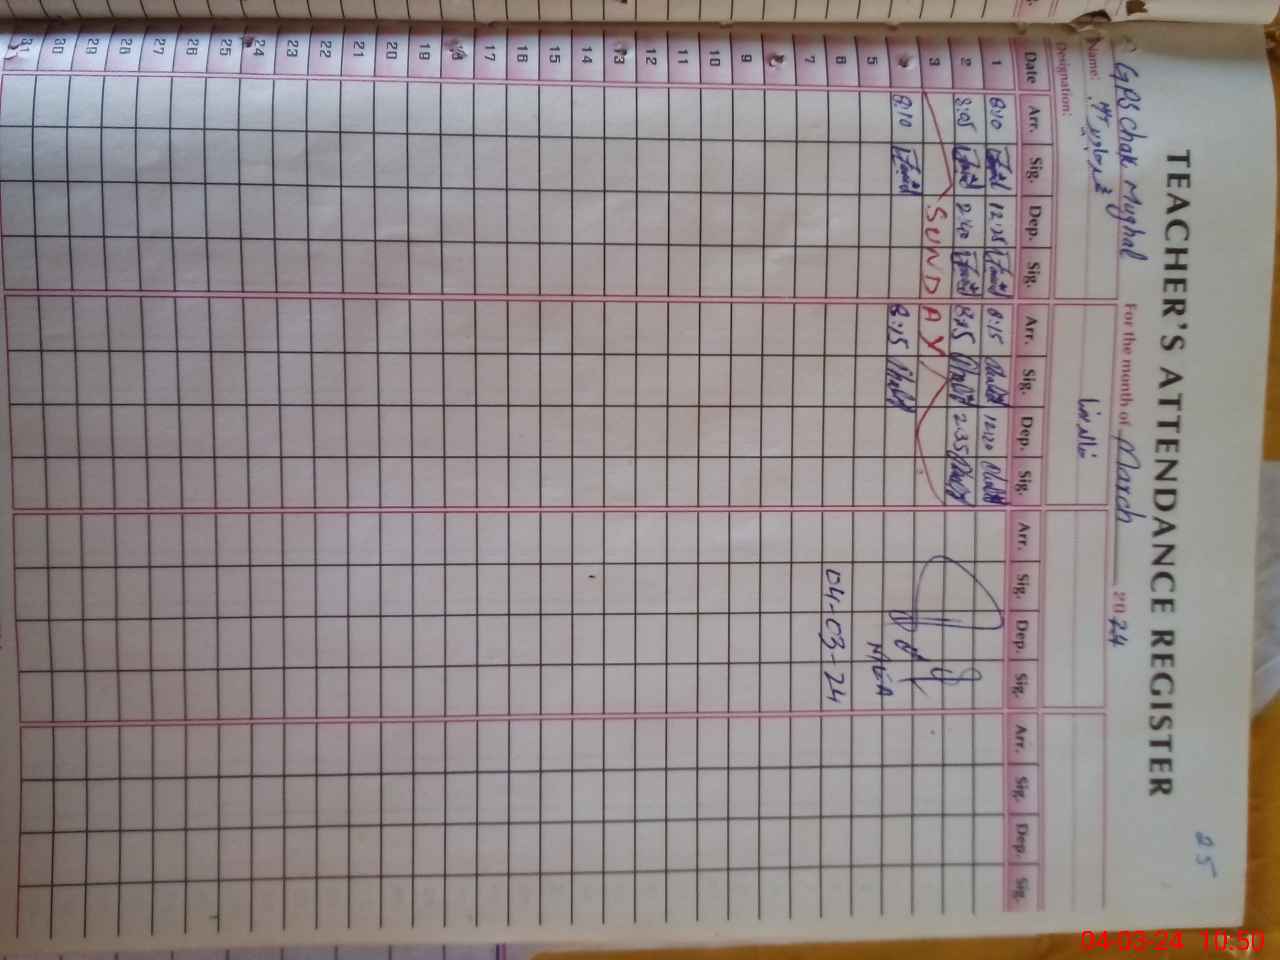 25
TEACHER'S ATTENDANCE REGISTER
GPS Chak Mughal For the month of March 2024
Name: خالد رضا
Designation:
Date Arr. Sig. Dep. Sig. Arr. Sig. Dep. Sig. Arr. Sig. Dep. Sig. Arr. Sig. Dep. Sig.
1 8:10 12:25 8:15 12:20
2 8:05 2:40 8:15 2:35
3 SUNDAY
8:10 8:15
5 AEO
6 04-03-24
7
9
10
11
12
13
14
15
16
17
18
19
20
21
22
23
24
25
26
27
28
29
30
31
04-03-24 10:50